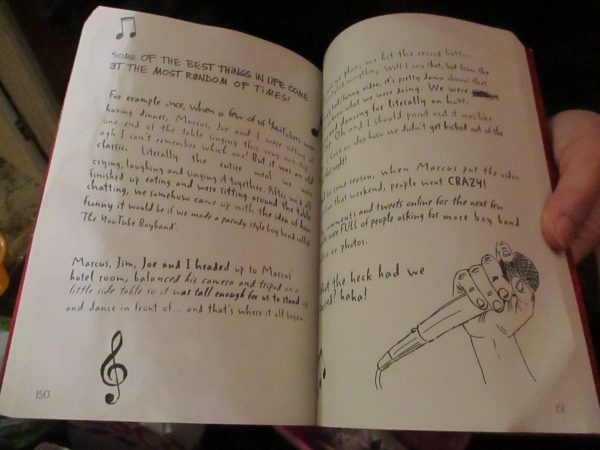 SOME OF THE BEST THINGS IN LIFE COME
AT THE MOST RANDOM OF TIMES!
For example once, when a few of us YouTubers were
having dinner, Marcus, Joe and I were sitting at
one end of the table singing this song non-stop
agh I can't remember which one! But it was an old
classic. Literally the entire meal we were
crying, laughing and singing it together. After we'd all
finished up eating and were sitting around the table
chatting, we somehow came up with the idea of how
funny it would be if we made a parody style boy band called
'The YouTube Boyband'.
Marcus, Jim, Joe and I headed up to Marcus'
hotel room, balanced his camera and tripod on a
little side table so it was tall enough for us to stand up
and dance in front of... and that's where it all began
150
plan, we hit the record button
everything. Well I say that, but from the
funny video, it's pretty damn obvious that
what we were doing. We were
and dancing for literally an hour.
Oh and I should point out it was like
in also how we didn't get kicked out of the
night!
some reason, when Marcus put the video
that weekend, people went CRAZY!
comments and tweets online for the next few
FULL of people asking for more boy band
or photos.
the heck had we
haha!
151